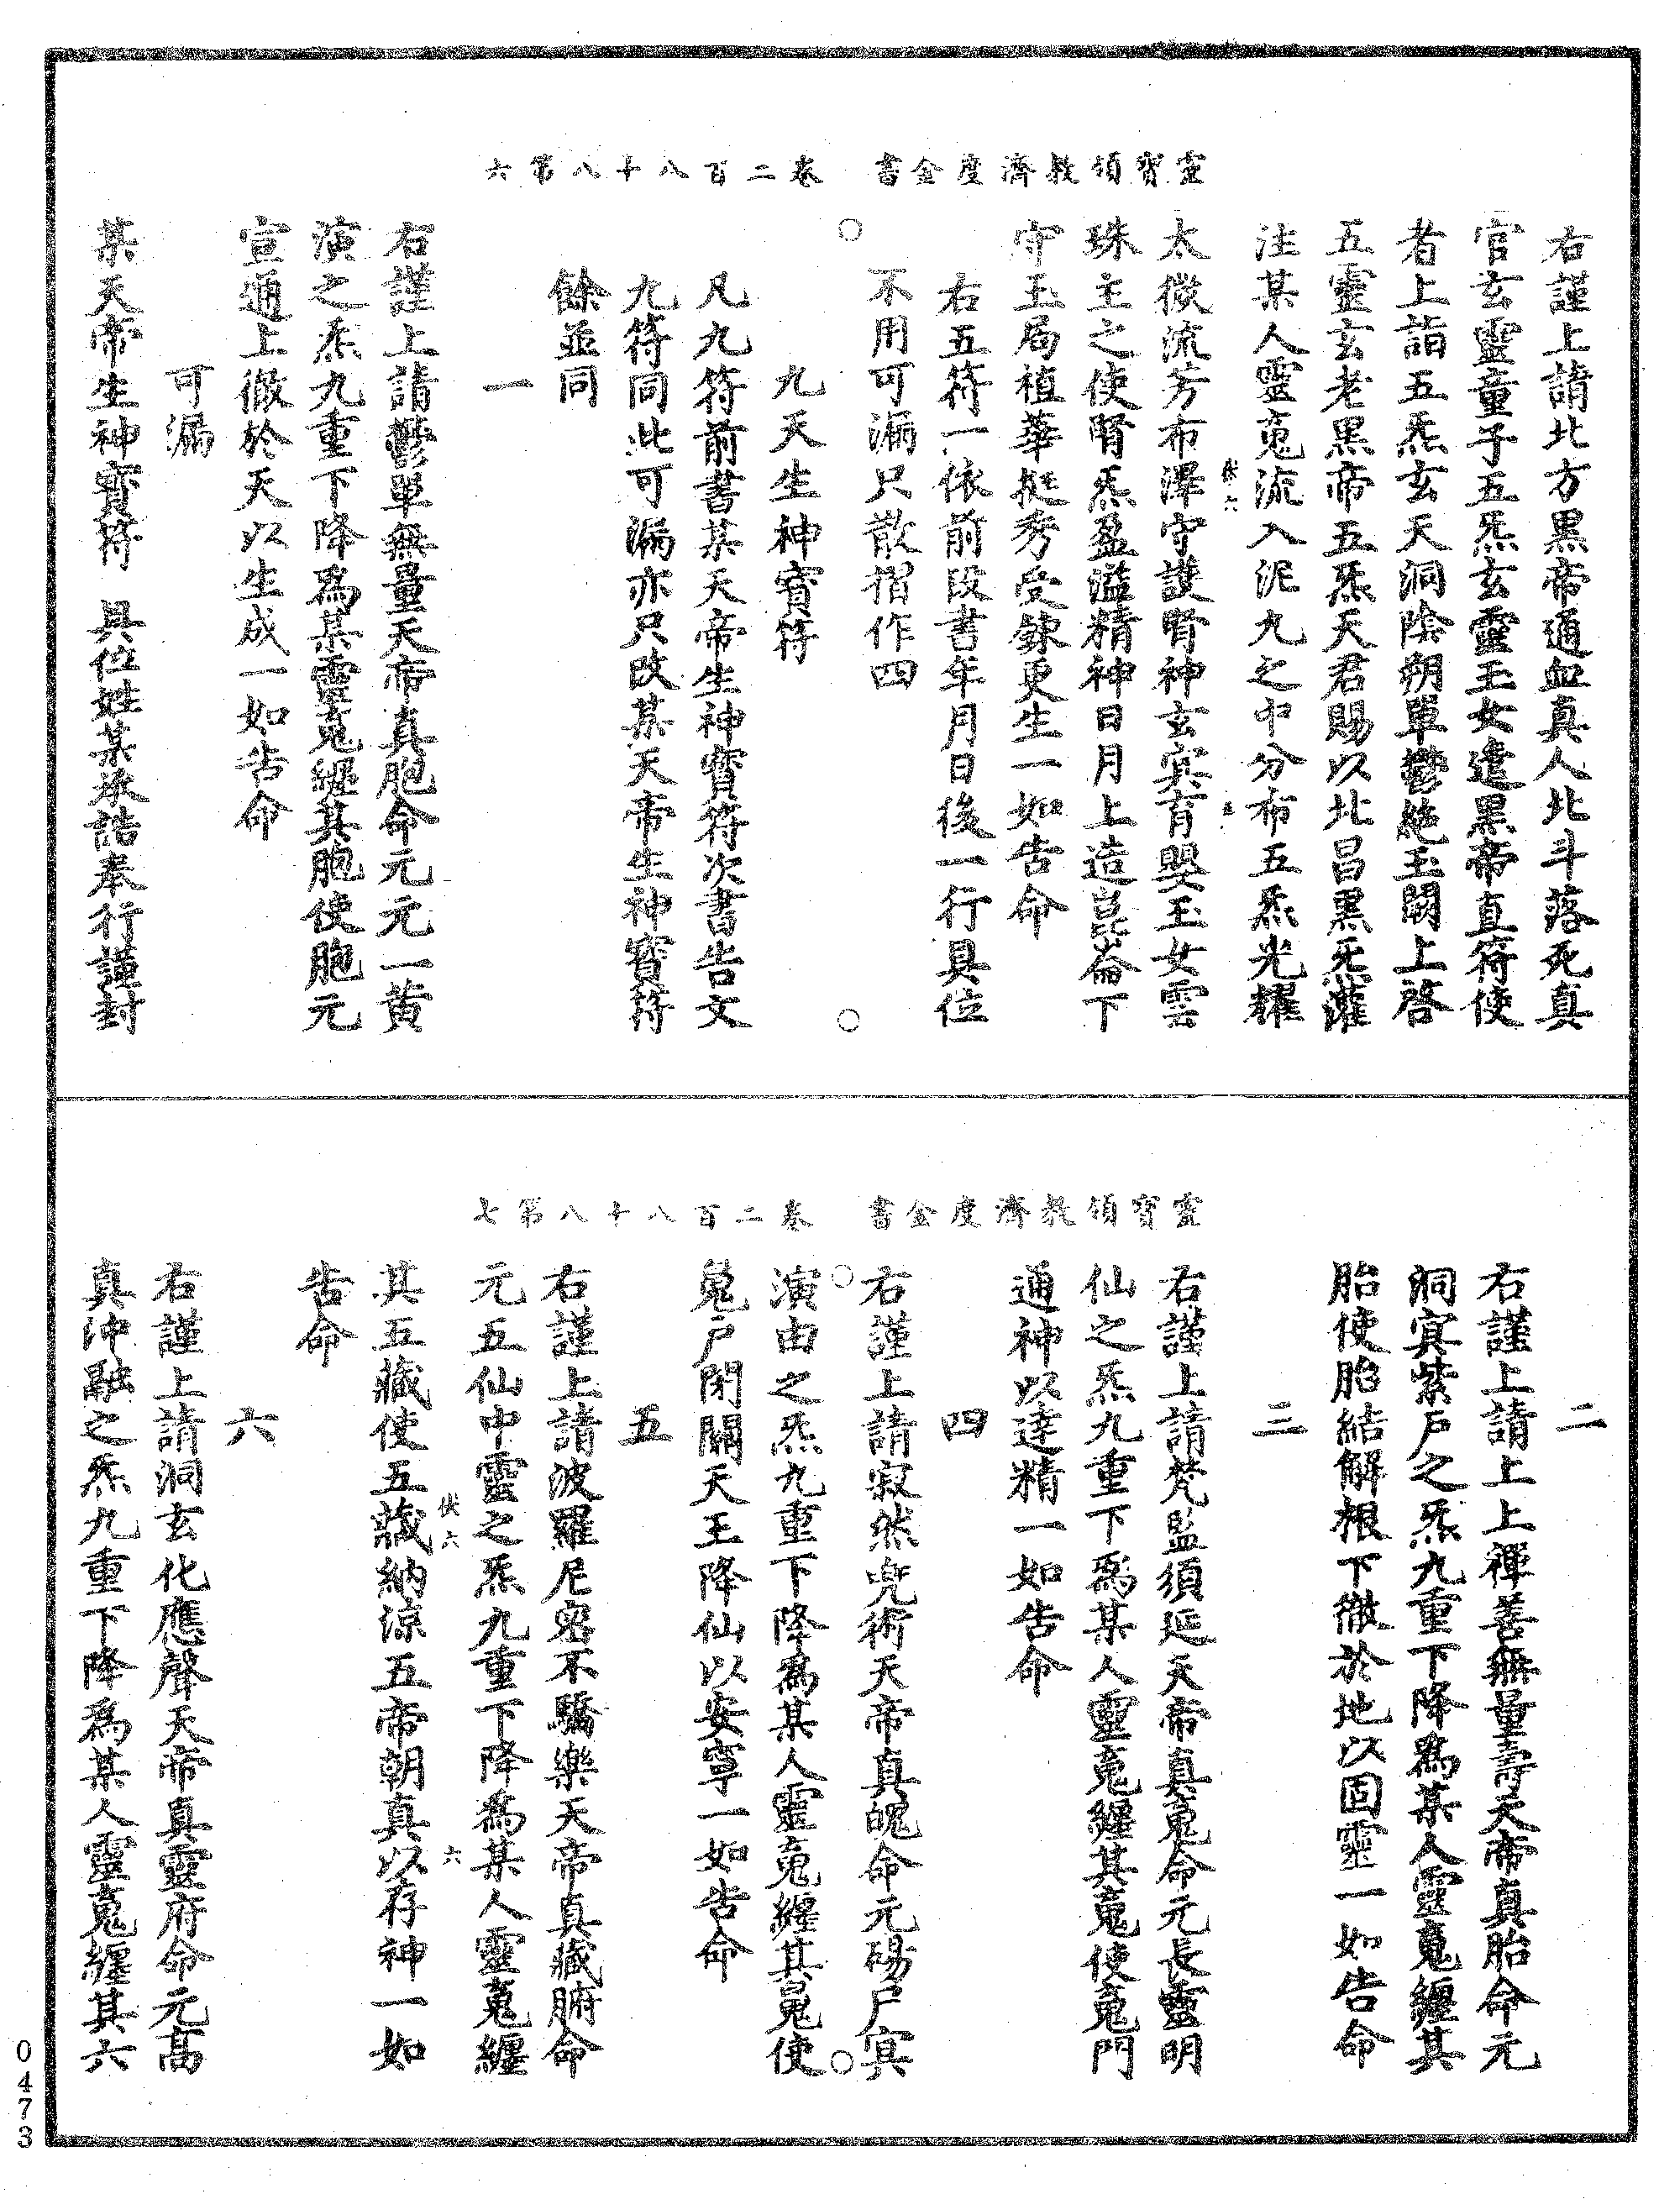 靈寶領教濟度金書　卷二百八十八第六
右謹上請北方黑帝通血真人北斗落死真
官玄靈童子五炁玄靈玉女遣黑帝直符使
者上詣五炁玄天洞陰朔單鬱絶玉闕上啓
五靈玄老黑帝五炁天君賜以北昌黑炁灌
注某人靈䰟流入泥丸之中分布五炁光耀
太微流芳布澤守護腎神玄冥育嬰玉女雲
珠主之使腎炁盈溢精神日月上造崑崙下
守玉局植華挺秀受鍊更生一如告命
右五符一依前段書年月日後一行具位
不用可漏只散摺作四
九天生神寳符
凡九符前書某天帝生神寳符次書告文
九符同此可漏亦只改某天帝生神寳符
餘並同
一
右謹上請鬱單無量天帝真胞命元元一黃
演之炁九重下降爲某靈䰟纒其胞使胞元
宣通上徹於天以生成一如告命
可漏
某天帝生神寳符　具位姓某承誥奉行謹封
靈寶領教濟度金書　卷二百八十八第七
二
右謹上請上上禪善無量壽天帝真胎命元
洞冥紫戶之炁九重下降爲某人靈䰟纒其
胎使胎結解根下徹於地以固靈一如告命
三
右謹上請梵監須延天帝真䰟命元長靈明
仙之炁九重下爲某人靈䰟纒其䰟使䰟門
通神以達精一如告命
四
右謹上請寂然兜術天帝真魄命元碭尸冥
演由之炁九重下降爲某人靈䰟纒其䰟使
䰟戶閉關天王降仙以安寧一如告命
五
右謹上請波羅尼密不驕樂天帝真藏腑命
元五仙中靈之炁九重下降爲某人靈䰟纒
其五藏使五藏納涼五帝朝真以存神一如
告命
六
右謹上請洞玄化應聲天帝真靈府命元高
真沖融之炁九重下降爲某人靈䰟纒其六
0473